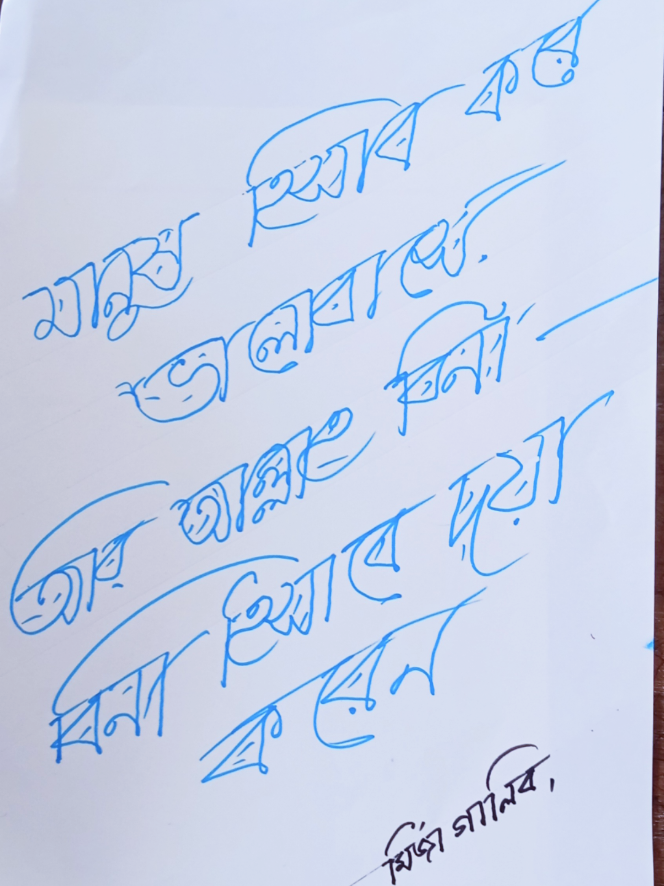 মানুষ হিসাব করে
ভালোবাসে.
আর আল্লাহ বিনা -
বিনা হিসাবে দয়া
করেন
মির্জা গালিব,